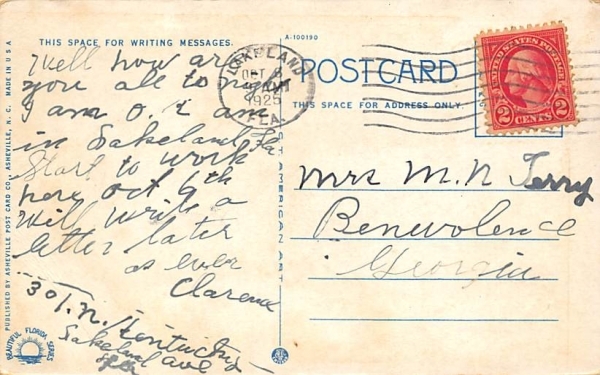 A-100190
THIS SPACE FOR WRITING MESSAGES.
POSTCARD
THIS SPACE FOR ADDRESS ONLY.
LAKELAND
OCT 8
1925
FLA.
UNITED STATES POSTAGE
2 CENTS 2
Well how are
you all to night
I am O.K am
in Lakeland Fla
Start to work
here Oct 6th
Will write a
letter later
as ever
Clarence
301. N. Kentucky
Lakeland ave
Fla
Mrs M. N Terry
Benevolence
Georgia
PUBLISHED BY ASHEVILLE POST CARD CO., ASHEVILLE, N. C. MADE IN U S A
BEAUTIFUL FLORIDA SERIES
AMERICAN ART